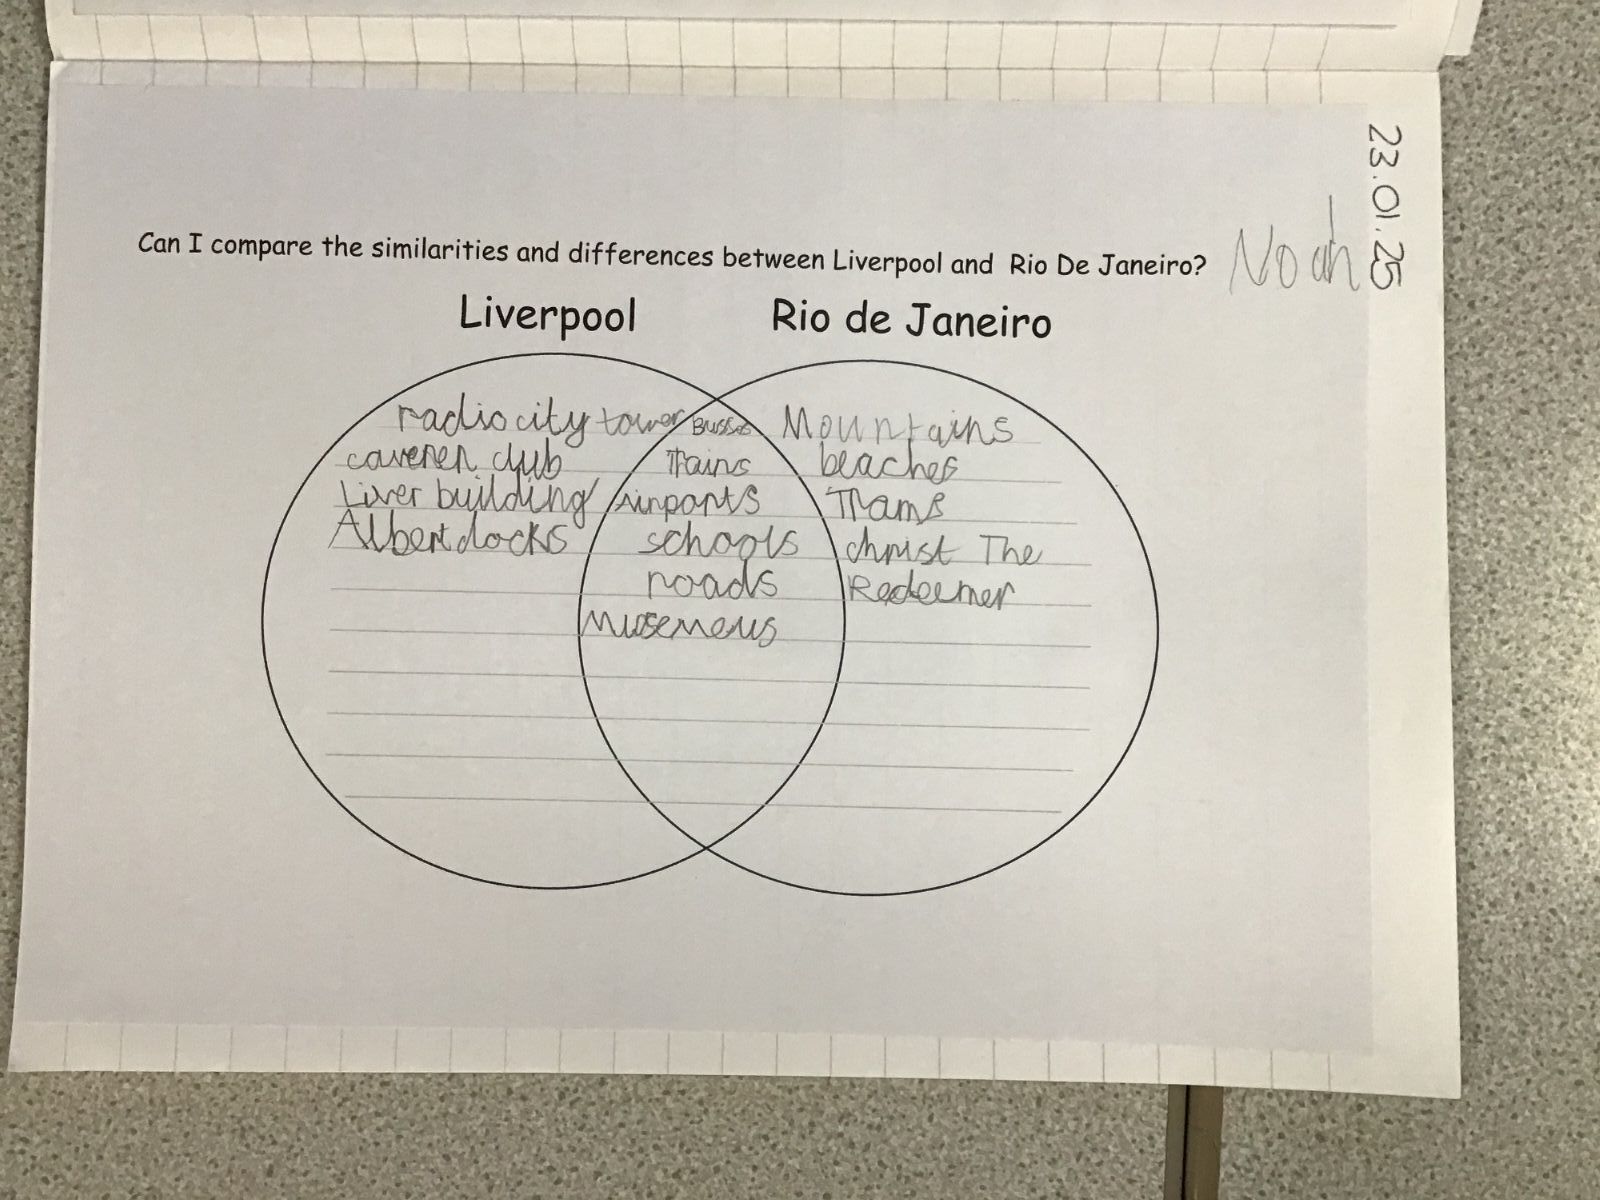 23.01.25
Noah
Can I compare the similarities and differences between Liverpool and Rio De Janeiro?
Liverpool
Rio de Janeiro
radio city tower
cavener club
Liver building
Albert docks
Busses
Trains
Airports
schools
roads
Musemeus
Mountains
beaches
Trams
christ The
Redeemer